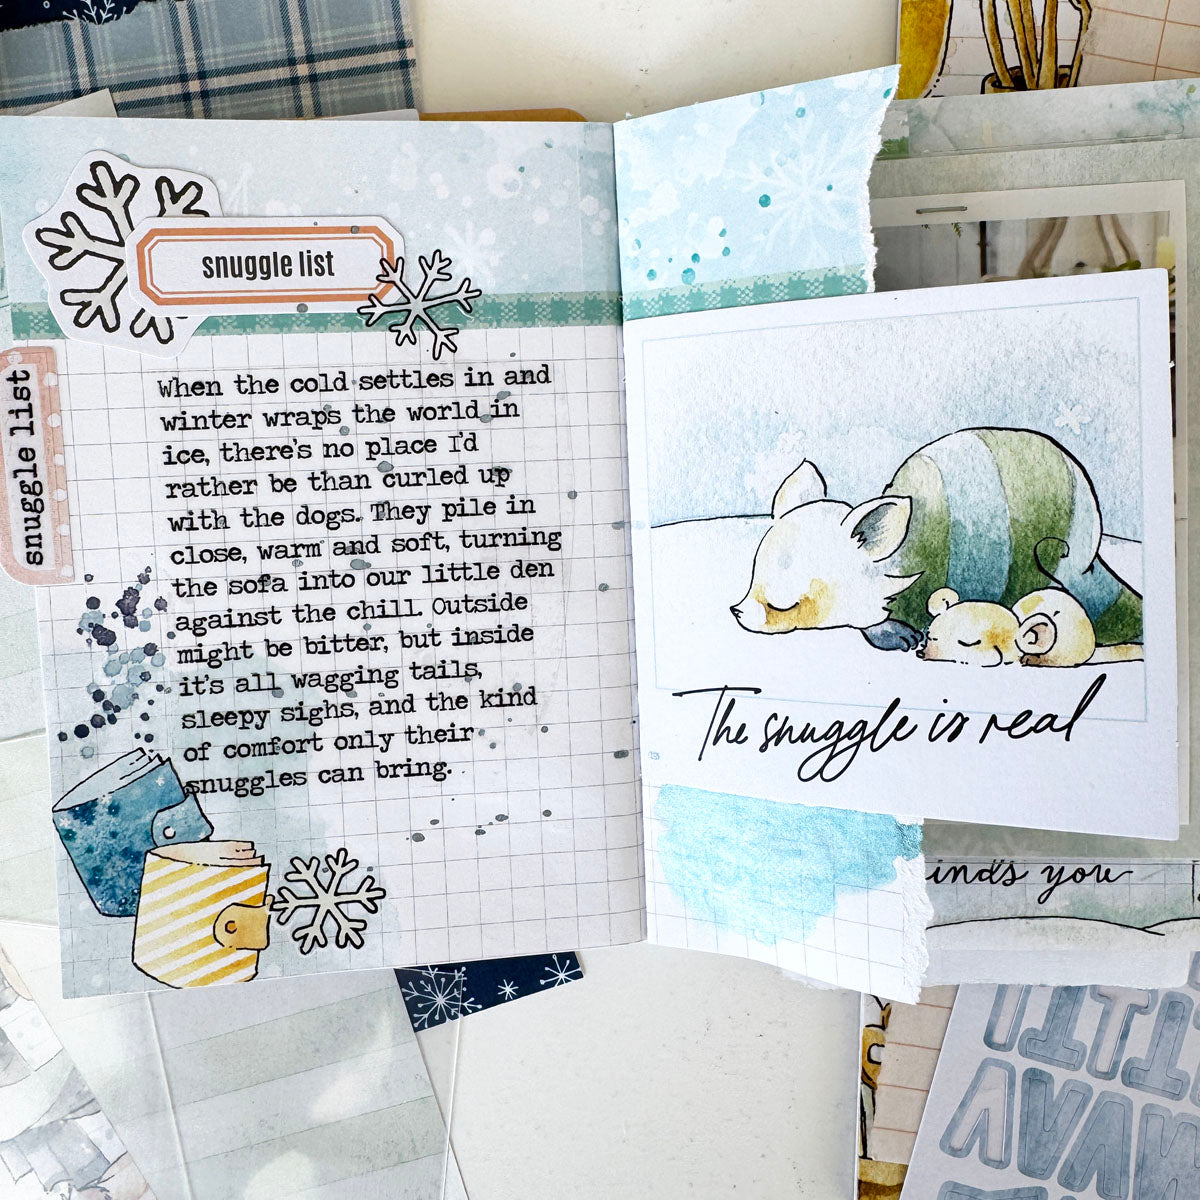 snuggle list
snuggle list
When the cold settles in and
winter wraps the world in
ice, there's no place I'd
rather be than curled up
with the dogs. They pile in
close, warm and soft, turning
the sofa into our little den
against the chill. Outside
might be bitter, but inside
it's all wagging tails,
sleepy sighs, and the kind
of comfort only their
snuggles can bring.
The snuggle is real
you